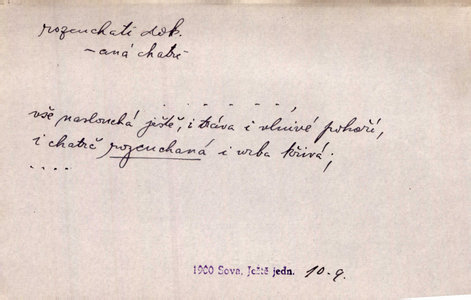 rozcuchati dok.
-aná chatrč
. . . . . . . . ,
vše naslouchá jistě, i tráva i vlnivé pohoří,
i chatrč rozcuchaná i vrba křivá;
. . . .
1900 Sova, Ještě jedn. 10.9.